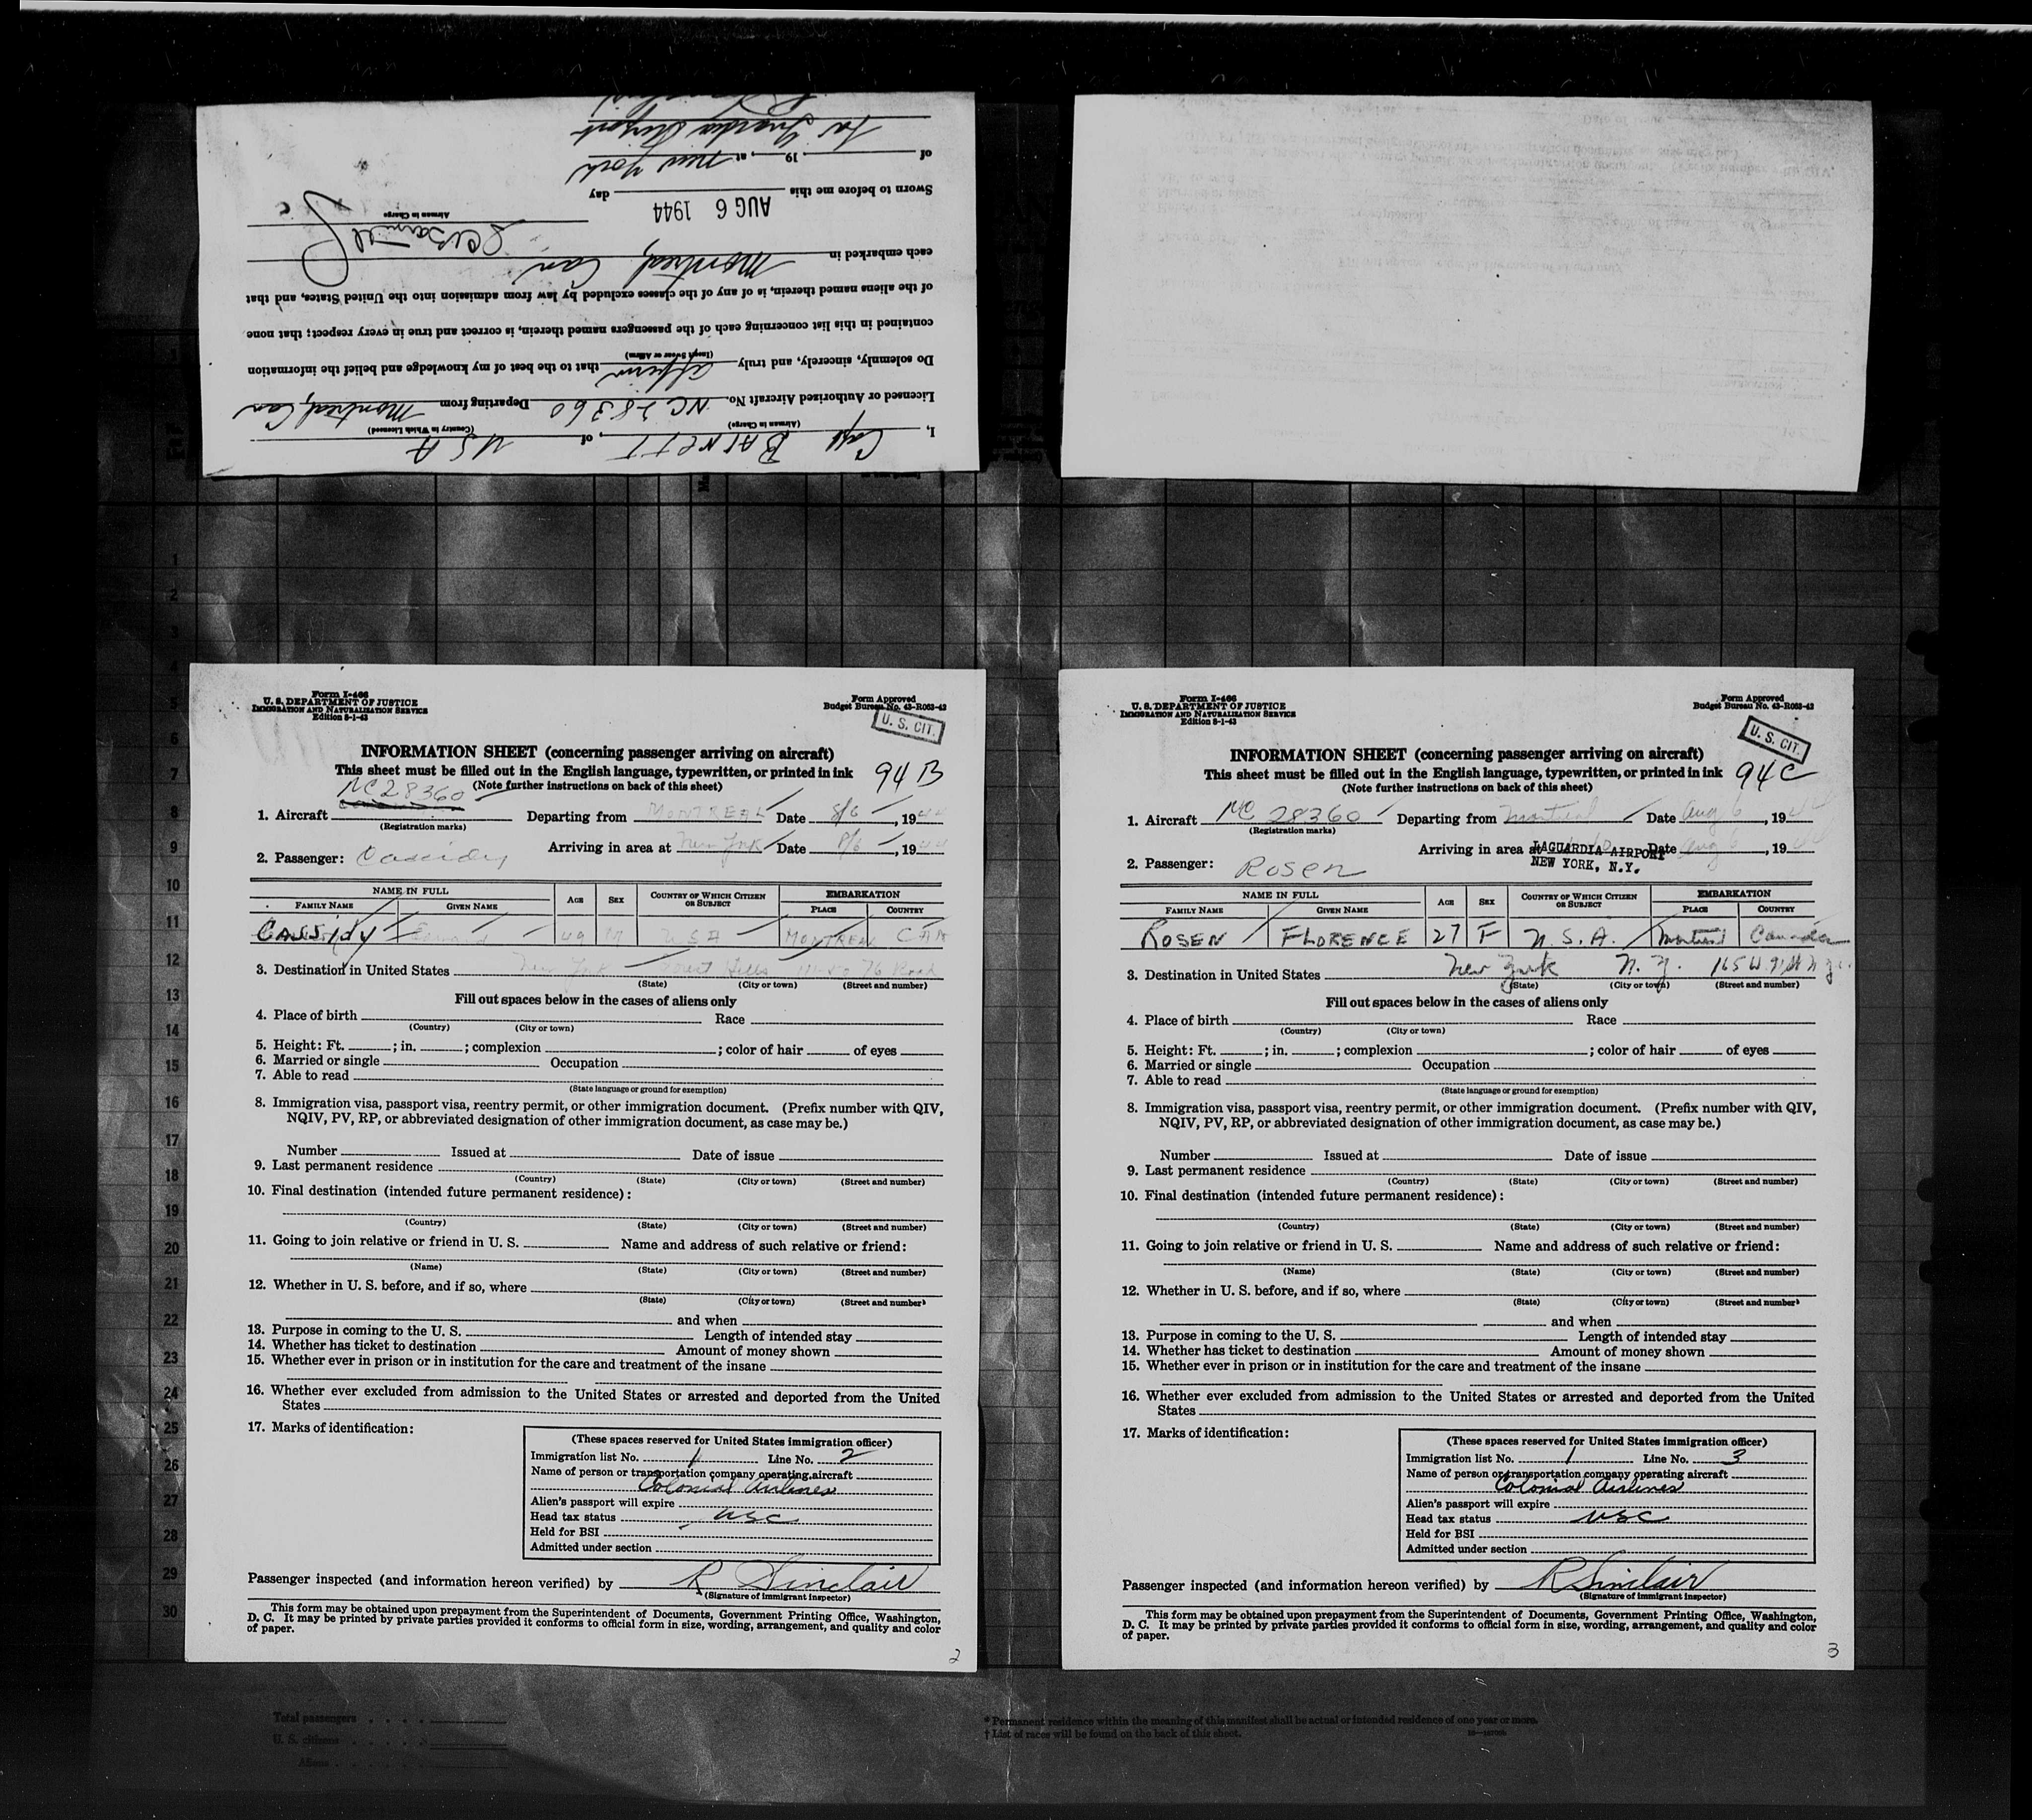 I, Capt Barnett, of USA
(Airman in Charge) (Country in Which Licensed)
Licensed or Authorized Aircraft No. NC28360 Departing from Montreal, Can
Do solemnly, sincerely, and truly affirm that to the best of my knowledge and belief the information
(Insert Swear or Affirm)
contained in this list concerning each of the passengers named therein, is correct and true in every respect; that none
of the aliens named therein, is of any of the classes excluded by law from admission into the United States, and that
each embarked in Montreal, Can
Airman in Charge
Sworn to before me this AUG 6 1944 day
of 19, at New York
La Guardia Airport
Form I-466
U. S. DEPARTMENT OF JUSTICE
IMMIGRATION AND NATURALIZATION SERVICE
Edition 8-1-43
Form Approved
Budget Bureau No. 43-R063-42
U. S. CIT.
INFORMATION SHEET (concerning passenger arriving on aircraft)
This sheet must be filled out in the English language, typewritten, or printed in ink 94 B
(Note further instructions on back of this sheet)
NC28360
1. Aircraft Departing from MONTREAL Date 8/6, 1944
(Registration marks)
Arriving in area at New York Date 8/6, 1944
2. Passenger: Cassidy
NAME IN FULL AGE SEX COUNTRY OF WHICH CITIZEN OR SUBJECT EMBARKATION
FAMILY NAME GIVEN NAME PLACE COUNTRY
CASSIdy 49 M USA MONTREAL CAN
3. Destination in United States New York Forest Hills 76 Road
(State) (City or town) (Street and number)
Fill out spaces below in the cases of aliens only
4. Place of birth Race
(Country) (City or town)
5. Height: Ft. ; in. ; complexion ; color of hair of eyes
6. Married or single Occupation
7. Able to read
(State language or ground for exemption)
8. Immigration visa, passport visa, reentry permit, or other immigration document. (Prefix number with QIV,
NQIV, PV, RP, or abbreviated designation of other immigration document, as case may be.)
Number Issued at Date of issue
9. Last permanent residence
(Country) (State) (City or town) (Street and number)
10. Final destination (intended future permanent residence):
(Country) (State) (City or town) (Street and number)
11. Going to join relative or friend in U. S. Name and address of such relative or friend:
(Name) (State) (City or town) (Street and number)
12. Whether in U. S. before, and if so, where
(State) (City or town) (Street and number)
and when
13. Purpose in coming to the U. S. Length of intended stay
14. Whether has ticket to destination Amount of money shown
15. Whether ever in prison or in institution for the care and treatment of the insane
16. Whether ever excluded from admission to the United States or arrested and deported from the United
States
17. Marks of identification:
(These spaces reserved for United States immigration officer)
Immigration list No. 1 Line No. 2
Name of person or transportation company operating aircraft
Colonial Airlines
Alien's passport will expire
Head tax status USC
Held for BSI
Admitted under section
Passenger inspected (and information hereon verified) by R Sinclair
(Signature of immigrant inspector)
This form may be obtained upon prepayment from the Superintendent of Documents, Government Printing Office, Washington,
D. C. It may be printed by private parties provided it conforms to official form in size, wording, arrangement, and quality and color
of paper.
2
Form I-466
U. S. DEPARTMENT OF JUSTICE
IMMIGRATION AND NATURALIZATION SERVICE
Edition 8-1-43
Form Approved
Budget Bureau No. 43-R063-42
U. S. CIT.
INFORMATION SHEET (concerning passenger arriving on aircraft)
This sheet must be filled out in the English language, typewritten, or printed in ink 94C
(Note further instructions on back of this sheet)
1. Aircraft NC 28360 Departing from Montreal Date Aug 6, 1944
(Registration marks)
Arriving in area at LAGUARDIA AIRPORT Date Aug 6, 1944
NEW YORK, N.Y.
2. Passenger: Rosen
NAME IN FULL AGE SEX COUNTRY OF WHICH CITIZEN OR SUBJECT EMBARKATION
FAMILY NAME GIVEN NAME PLACE COUNTRY
ROSEN FLORENCE 27 F U.S.A. Montreal Canada
3. Destination in United States New York N.Y. 165 W 91 St N.Y.C.
(State) (City or town) (Street and number)
Fill out spaces below in the cases of aliens only
4. Place of birth Race
(Country) (City or town)
5. Height: Ft. ; in. ; complexion ; color of hair of eyes
6. Married or single Occupation
7. Able to read
(State language or ground for exemption)
8. Immigration visa, passport visa, reentry permit, or other immigration document. (Prefix number with QIV,
NQIV, PV, RP, or abbreviated designation of other immigration document, as case may be.)
Number Issued at Date of issue
9. Last permanent residence
(Country) (State) (City or town) (Street and number)
10. Final destination (intended future permanent residence):
(Country) (State) (City or town) (Street and number)
11. Going to join relative or friend in U. S. Name and address of such relative or friend:
(Name) (State) (City or town) (Street and number)
12. Whether in U. S. before, and if so, where
(State) (City or town) (Street and number)
and when
13. Purpose in coming to the U. S. Length of intended stay
14. Whether has ticket to destination Amount of money shown
15. Whether ever in prison or in institution for the care and treatment of the insane
16. Whether ever excluded from admission to the United States or arrested and deported from the United
States
17. Marks of identification:
(These spaces reserved for United States immigration officer)
Immigration list No. 1 Line No. 3
Name of person or transportation company operating aircraft
Colonial Airlines
Alien's passport will expire
Head tax status USC
Held for BSI
Admitted under section
Passenger inspected (and information hereon verified) by R Sinclair
(Signature of immigrant inspector)
This form may be obtained upon prepayment from the Superintendent of Documents, Government Printing Office, Washington,
D. C. It may be printed by private parties provided it conforms to official form in size, wording, arrangement, and quality and color
of paper.
3
1
2
3
4
5
6
7
8
9
10
11
12
13
14
15
16
17
18
19
20
21
22
23
24
25
26
27
28
29
30
Total passengers
U. S. citizens
Aliens
* Permanent residence within the meaning of this manifest shall be actual or intended residence of one year or more.
† List of races will be found on the back of this sheet.